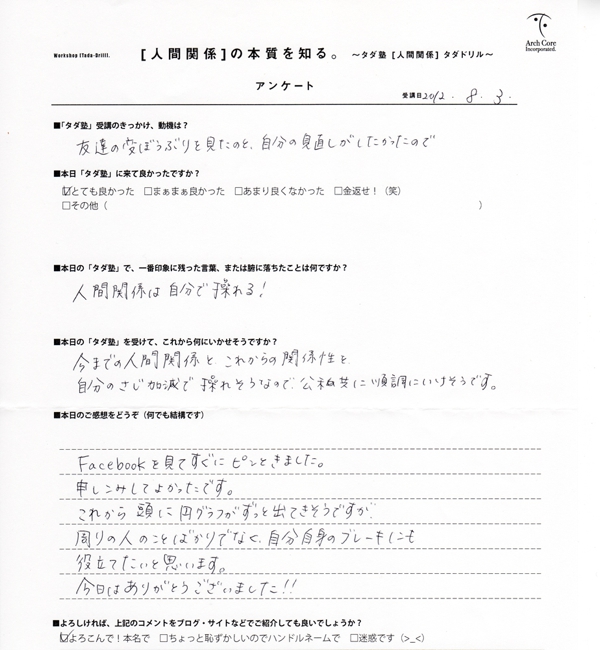 Workshop [Tada-Drill].
[人間関係]の本質を知る。 〜タダ塾 [人間関係] タダドリル〜
Arch Core
Incorporated.
アンケート
受講日 2012. 8. 3.
■「タダ塾」受講のきっかけ、動機は？
友達の変ぼうぶりを見たのと、自分の見直しがしたかったので
■本日「タダ塾」に来て良かったですか？
☑とても良かった □まぁまぁ良かった □あまり良くなかった □金返せ！（笑）
□その他（ ）
■本日の「タダ塾」で、一番印象に残った言葉、または腑に落ちたことは何ですか？
人間関係は自分で操れる!
■本日の「タダ塾」を受けて、これから何にいかせそうですか？
今までの人間関係と、これからの関係性を、
自分のさじ加減で操れそうなので、公私共に順調にいけそうです。
■本日のご感想をどうぞ（何でも結構です）
Facebookを見てすぐにピンときました。
申しこみしてよかったです。
これから頭に円グラフがずっと出てきそうですが、
周りの人のことばかりでなく、自分自身のブレーキにも
役立てたいと思います。
今日はありがとうございました!!
■よろしければ、上記のコメントをブログ・サイトなどでご紹介しても良いでしょうか？
☑よろこんで！本名で □ちょっと恥ずかしいのでハンドルネームで □迷惑です（>_<）